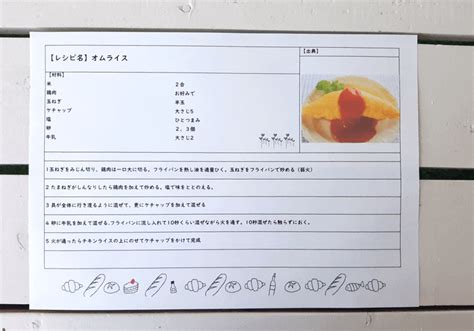 【レシピ名】オムライス
【出典】
【材料】
米 2合
鶏肉 お好みで
玉ねぎ 半玉
ケチャップ 大さじ5
塩 ひとつまみ
卵 2、3個
牛乳 大さじ2
1玉ねぎをみじん切り、鶏肉は一口大に切る。フライパンを熱し油を適量ひく。玉ねぎをフライパンで炒める（弱火）
2 たまねぎがしんなりしたら鶏肉を加えて炒める。塩で味をととのえる。
3 具が全体に行き渡るように混ぜて、更にケチャップを加えて混ぜる
4 卵に牛乳を加えて混ぜる。フライパンに流し入れて10秒くらい混ぜながら火を通す。10秒混ぜたら触らずにおく。
5 火が通ったらチキンライスの上にのせてケチャップをかけて完成